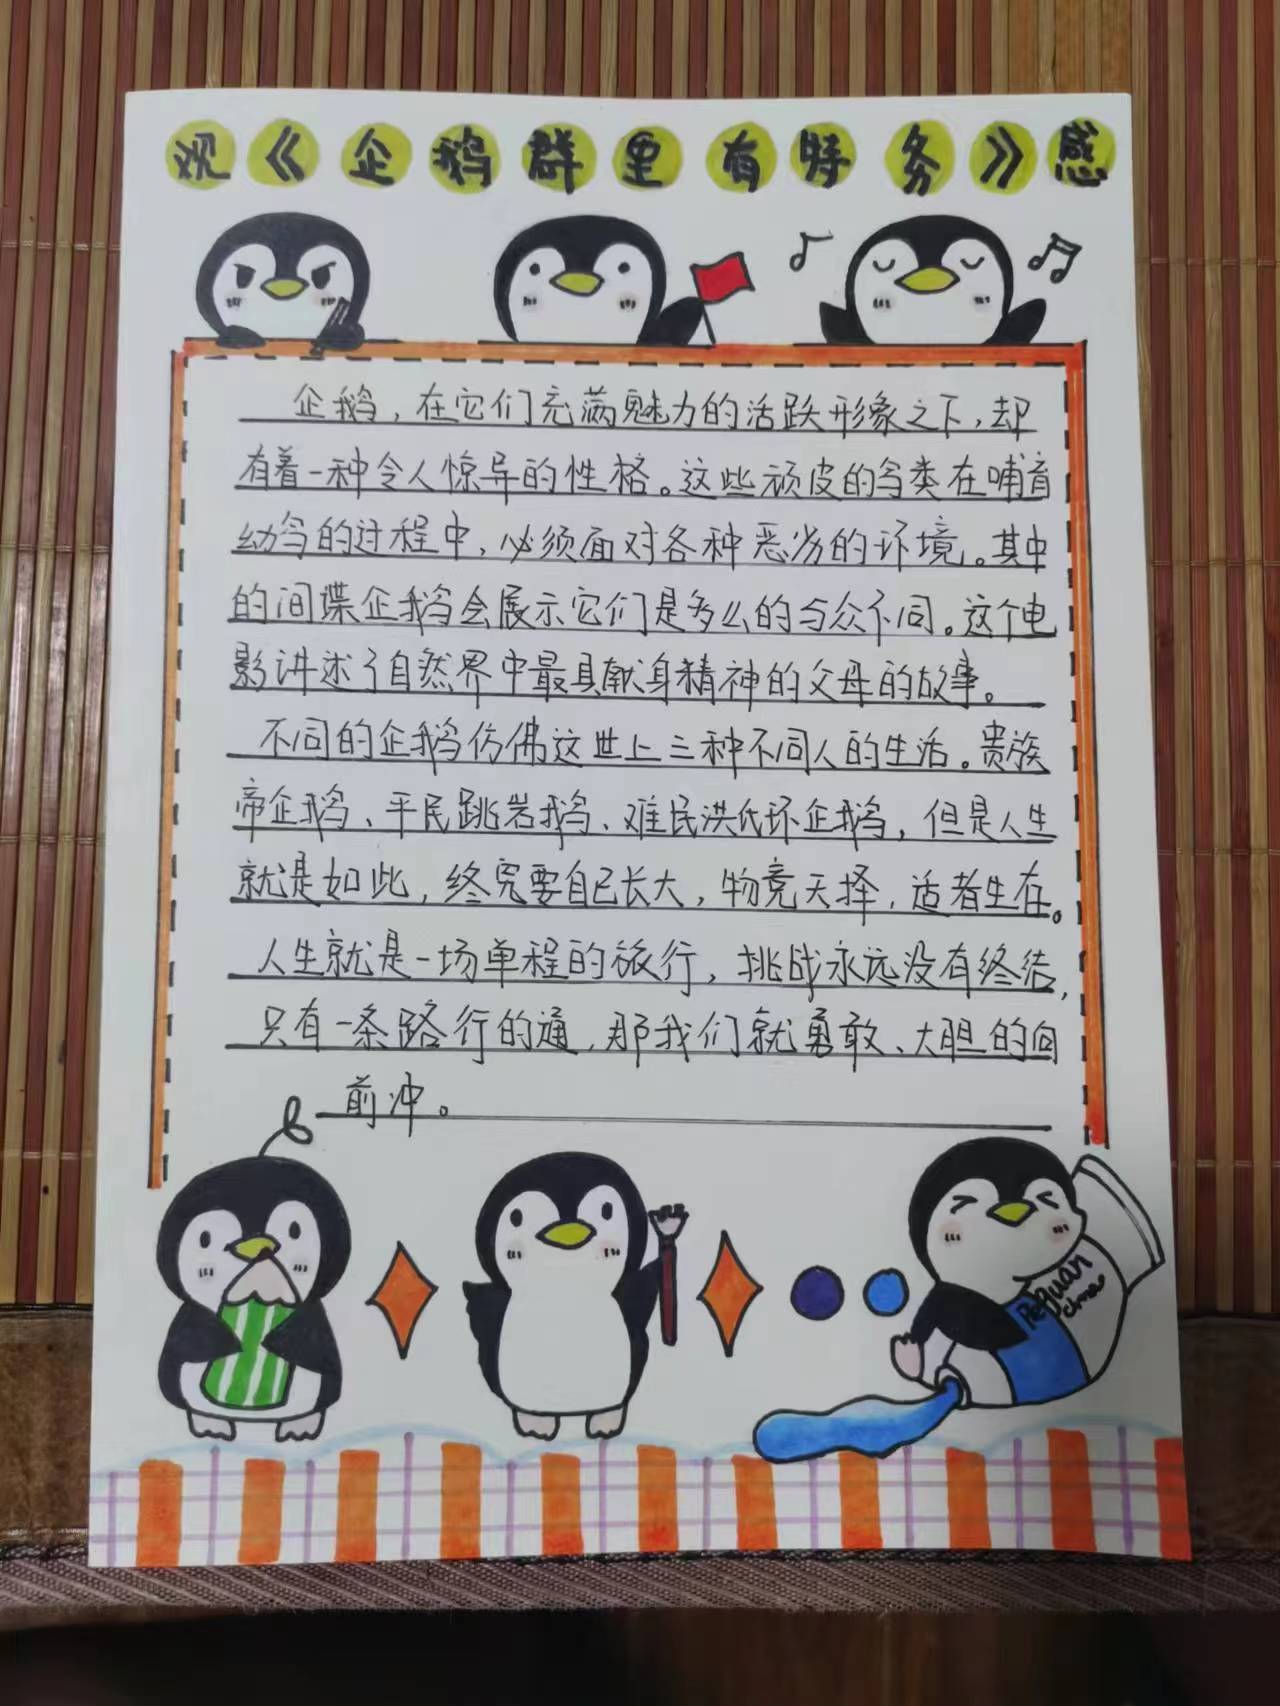 观《企鹅群里有特务》感
企鹅，在它们充满魅力的活跃形象之下，却
有着一种令人惊异的性格。这些顽皮的鸟类在哺育
幼鸟的过程中，必须面对各种恶劣的环境。其中
的间谍企鹅会展示它们是多么的与众不同。这个电
影讲述了自然界中最具献身精神的父母的故事。
不同的企鹅仿佛这世上三种不同人的生活。贵族
帝企鹅、平民跳岩鹅、难民洪氏环企鹅，但是人生
就是如此，终究要自己长大，物竞天择，适者生存。
人生就是一场单程的旅行，挑战永远没有终结，
只有一条路行的通，那我们就勇敢、大胆的向
前冲。